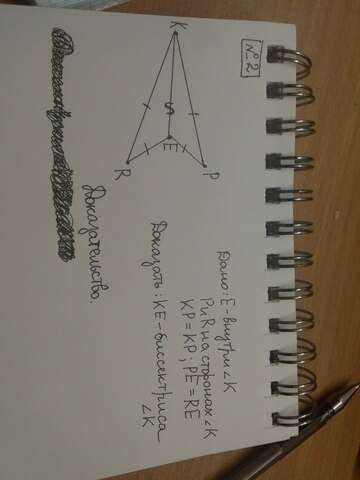 №2
K
S
E
R
P
Дано: E-внутри ∠K
P и R на сторонах ∠K
KP = KP; PE = RE
Доказать: KE-биссектриса
∠K
Доказательство.